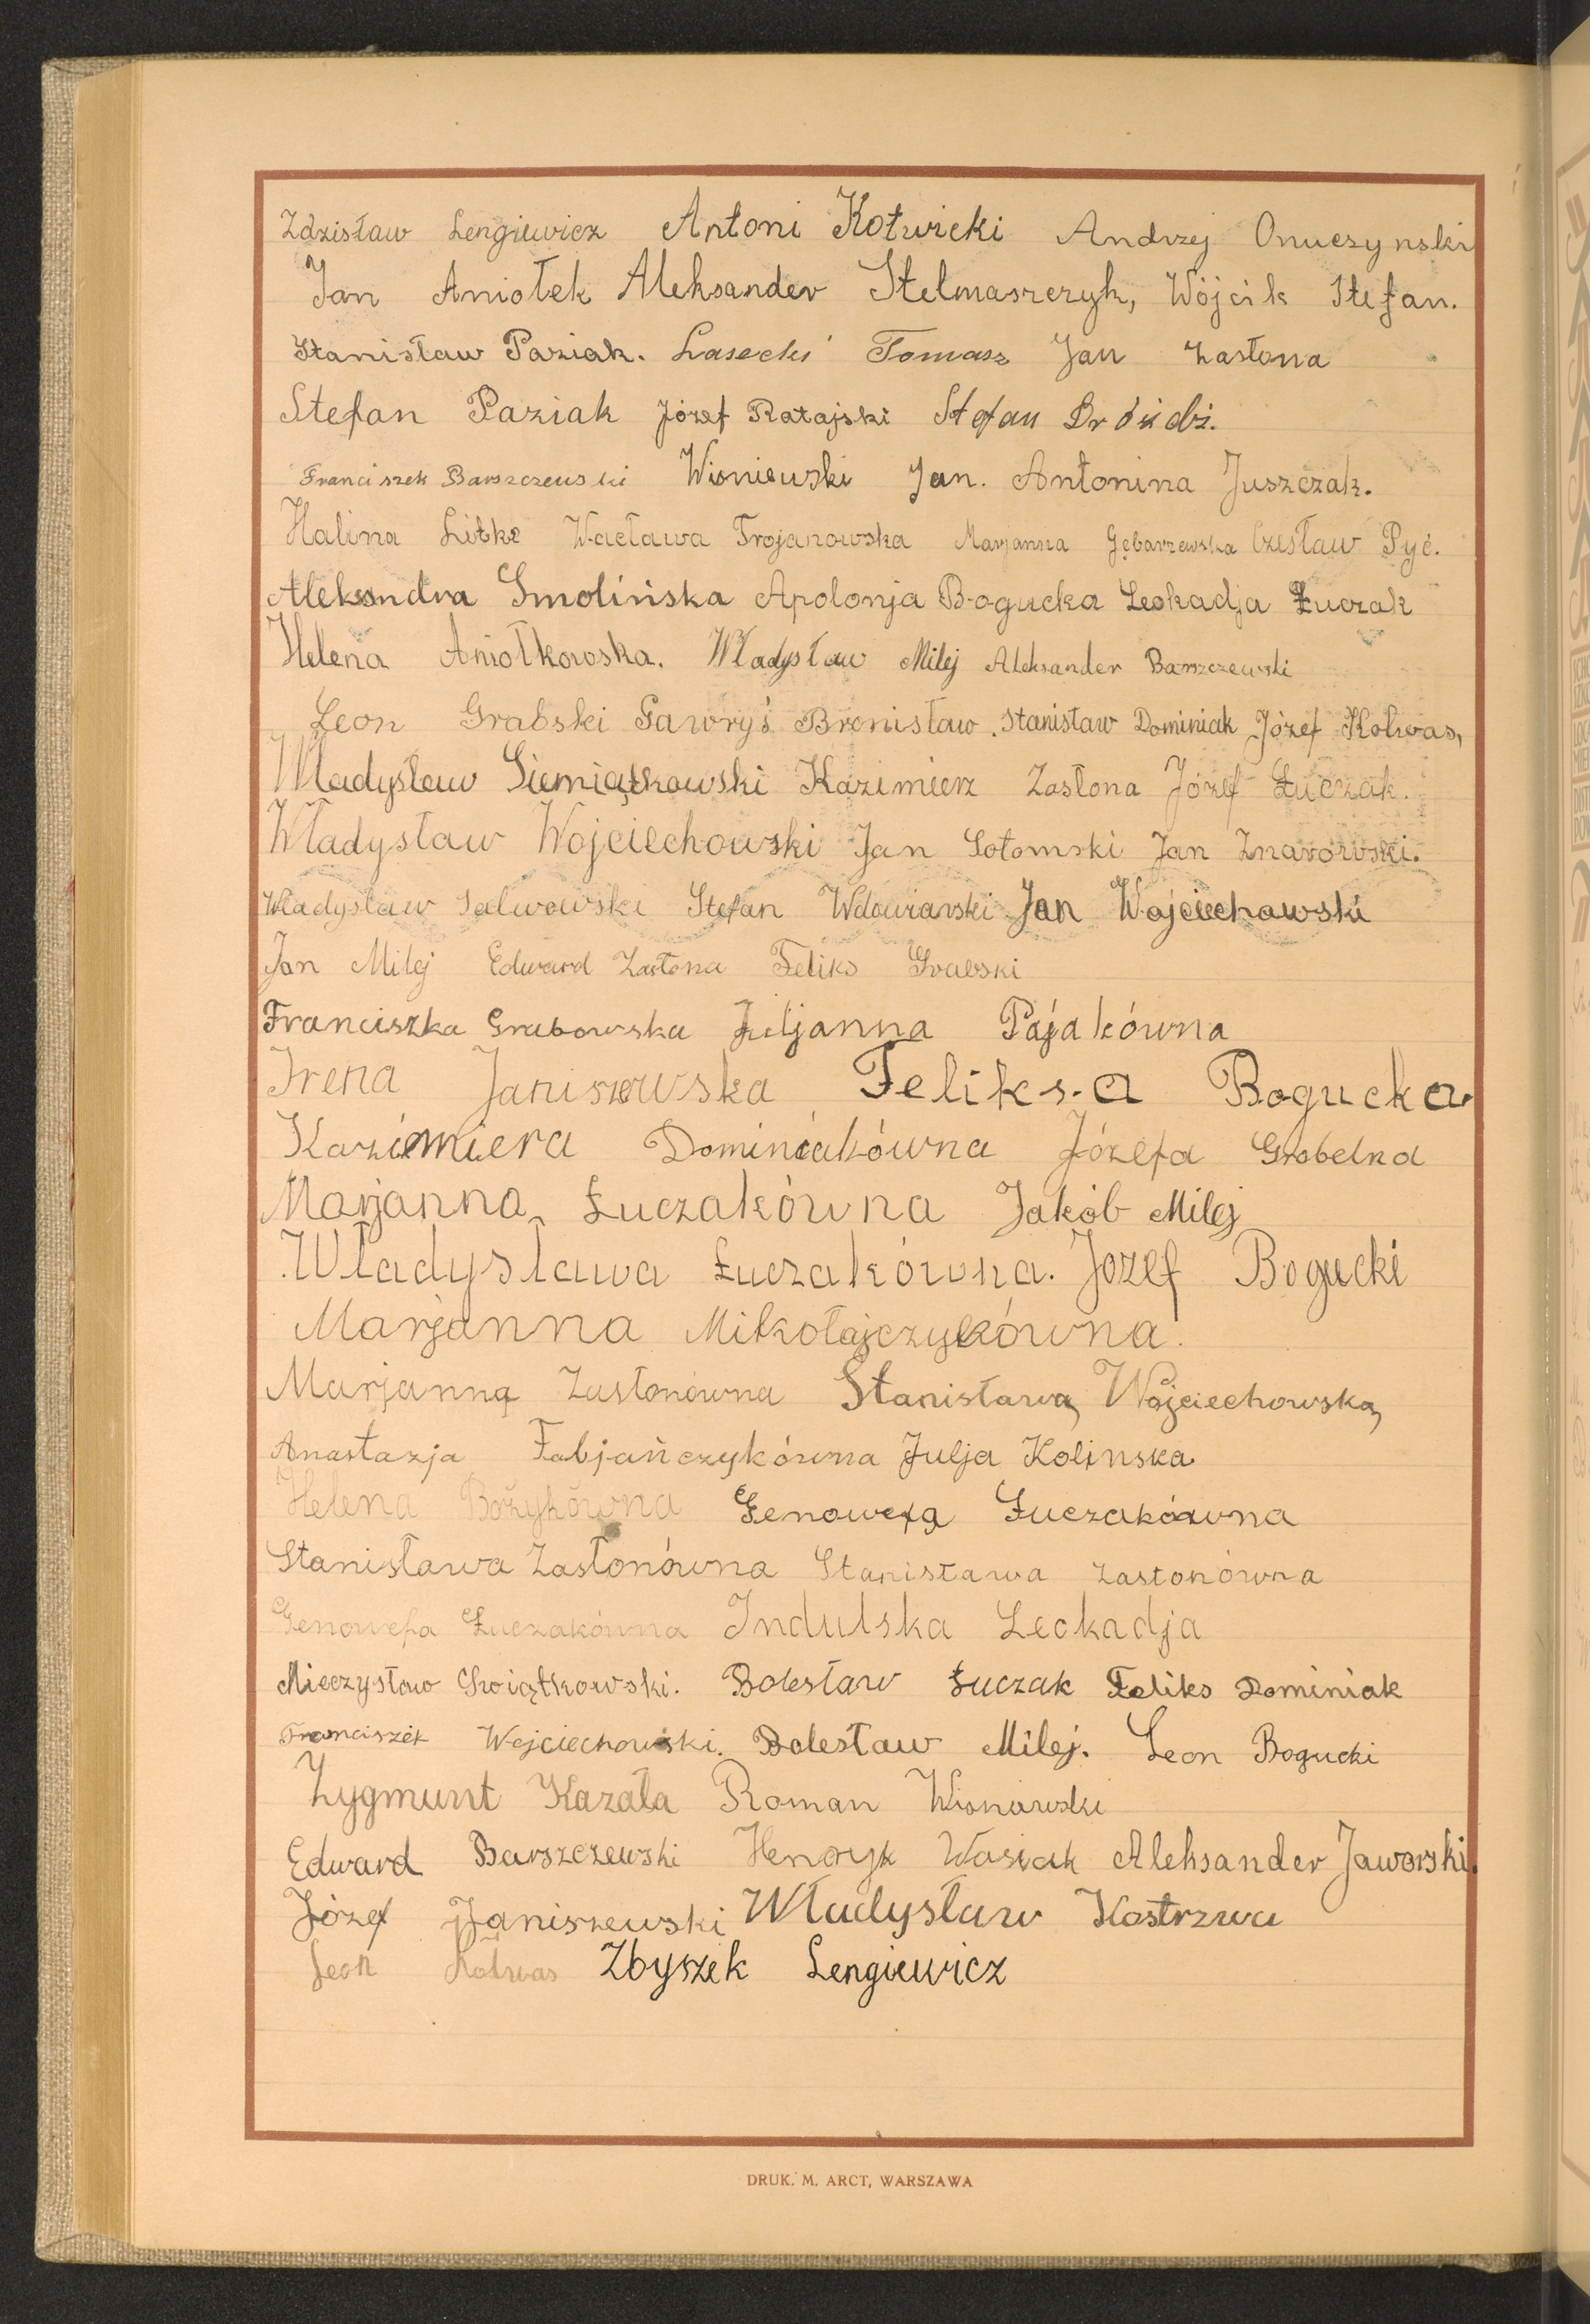 Zdzisław Lengiewicz Antoni Kotwicki Andrzej Onuczynski
Jan Aniołek Aleksander Stelmaszczyk, Wójcik Stefan.
Stanisław Paziak. Lasecki Tomasz Jan Zasłona
Stefan Paziak Józef Ratajski Stefan Dróżdż.
Franciszek Barszczewski Wisniewski Jan. Antonina Juszczak.
Halina Litke Wacława Trojanowska Marjanna Gębarzewska Czesław Pyć.
Aleksandra Smolińska Apolonja Bogucka Leokadja Łuczak
Helena Aniołkowska. Władysław Milej Aleksander Barszczewski
Leon Grabski Gawryś Bronisław. Stanisław Dominiak Józef Kolwas,
Władysław Siemiątkowski Kazimierz Zasłona Józef Łuczak.
Władysław Wojciechowski Jan Sotomski Jan Znarowski.
Władysław Salwowski Stefan Wdowiarski Jan Wojciechowski
Jan Milej Edward Zasłona Feliks Grabski
Franciszka Grabowska Juljanna Pająkówna
Irena Janiszewska Feliksa Bogucka
Kazimiera Dominiakówna Józefa Grobelna
Marjanna Łuczakówna Jakób Milej
Władysława Łuczakówna. Jozef Bogucki
Marjanna Mikołajczykówna.
Marjanna Zasłonówna Stanisława, Wojciechowska,
Anastazja Fabjańczykówna Julja Kolinska
Helena Bożykówna Genowefa Łuczakówna
Stanisława Zasłonówna Stanisława Zasłonówna
Genowefa Łuczakówna Indulska Leokadja
Mieczysław Świątkowski. Bolesław Łuczak Feliks Dominiak
Franciszek Wojciechowski. Bolesław Milej. Leon Bogucki
Zygmunt Kazała Roman Wisniewski
Edward Barszczewski Henryk Wasiak Aleksander Jaworski.
Józef Janiszewski Władysław Kostrzwa
Leon Kolwas Zbyszek Lengiewicz
DRUK. M. ARCT, WARSZAWA